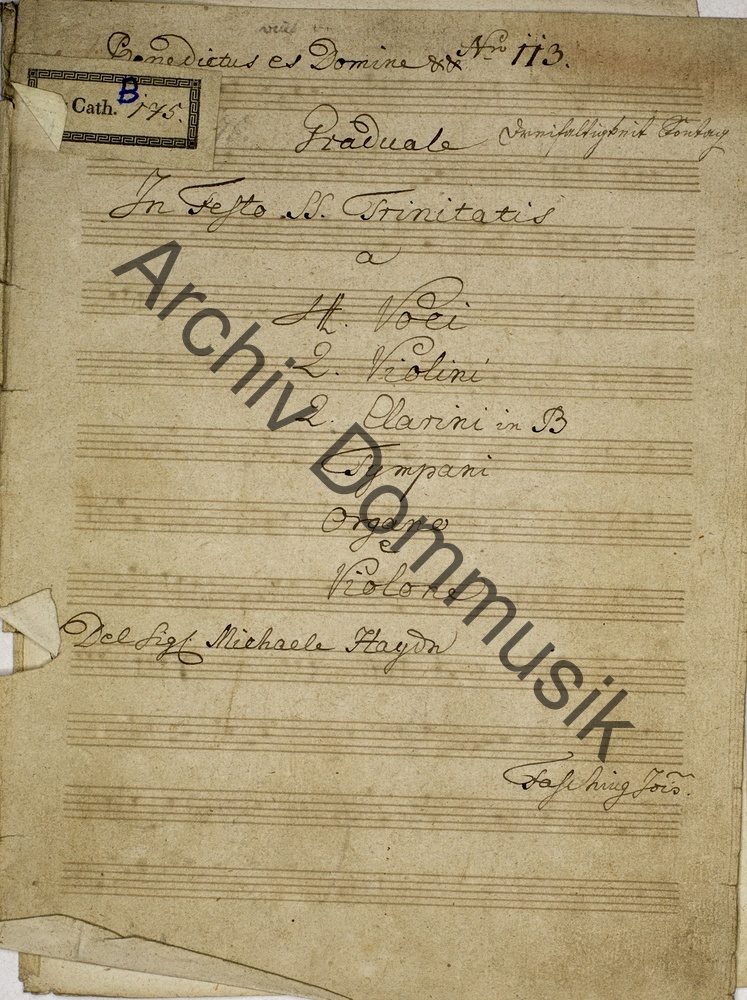 Benedictus es Domine Nro 113.
Cath. B 175.
Graduale Dreifaltigkeit Sontag
In Festo SS. Trinitatis
a
4. Voci
2. Violini
2. Clarini in B
Tympani
Organo
e
Violone
Del Sigl Michaele Haydn
Fasching Jois.
Archiv Dommusik